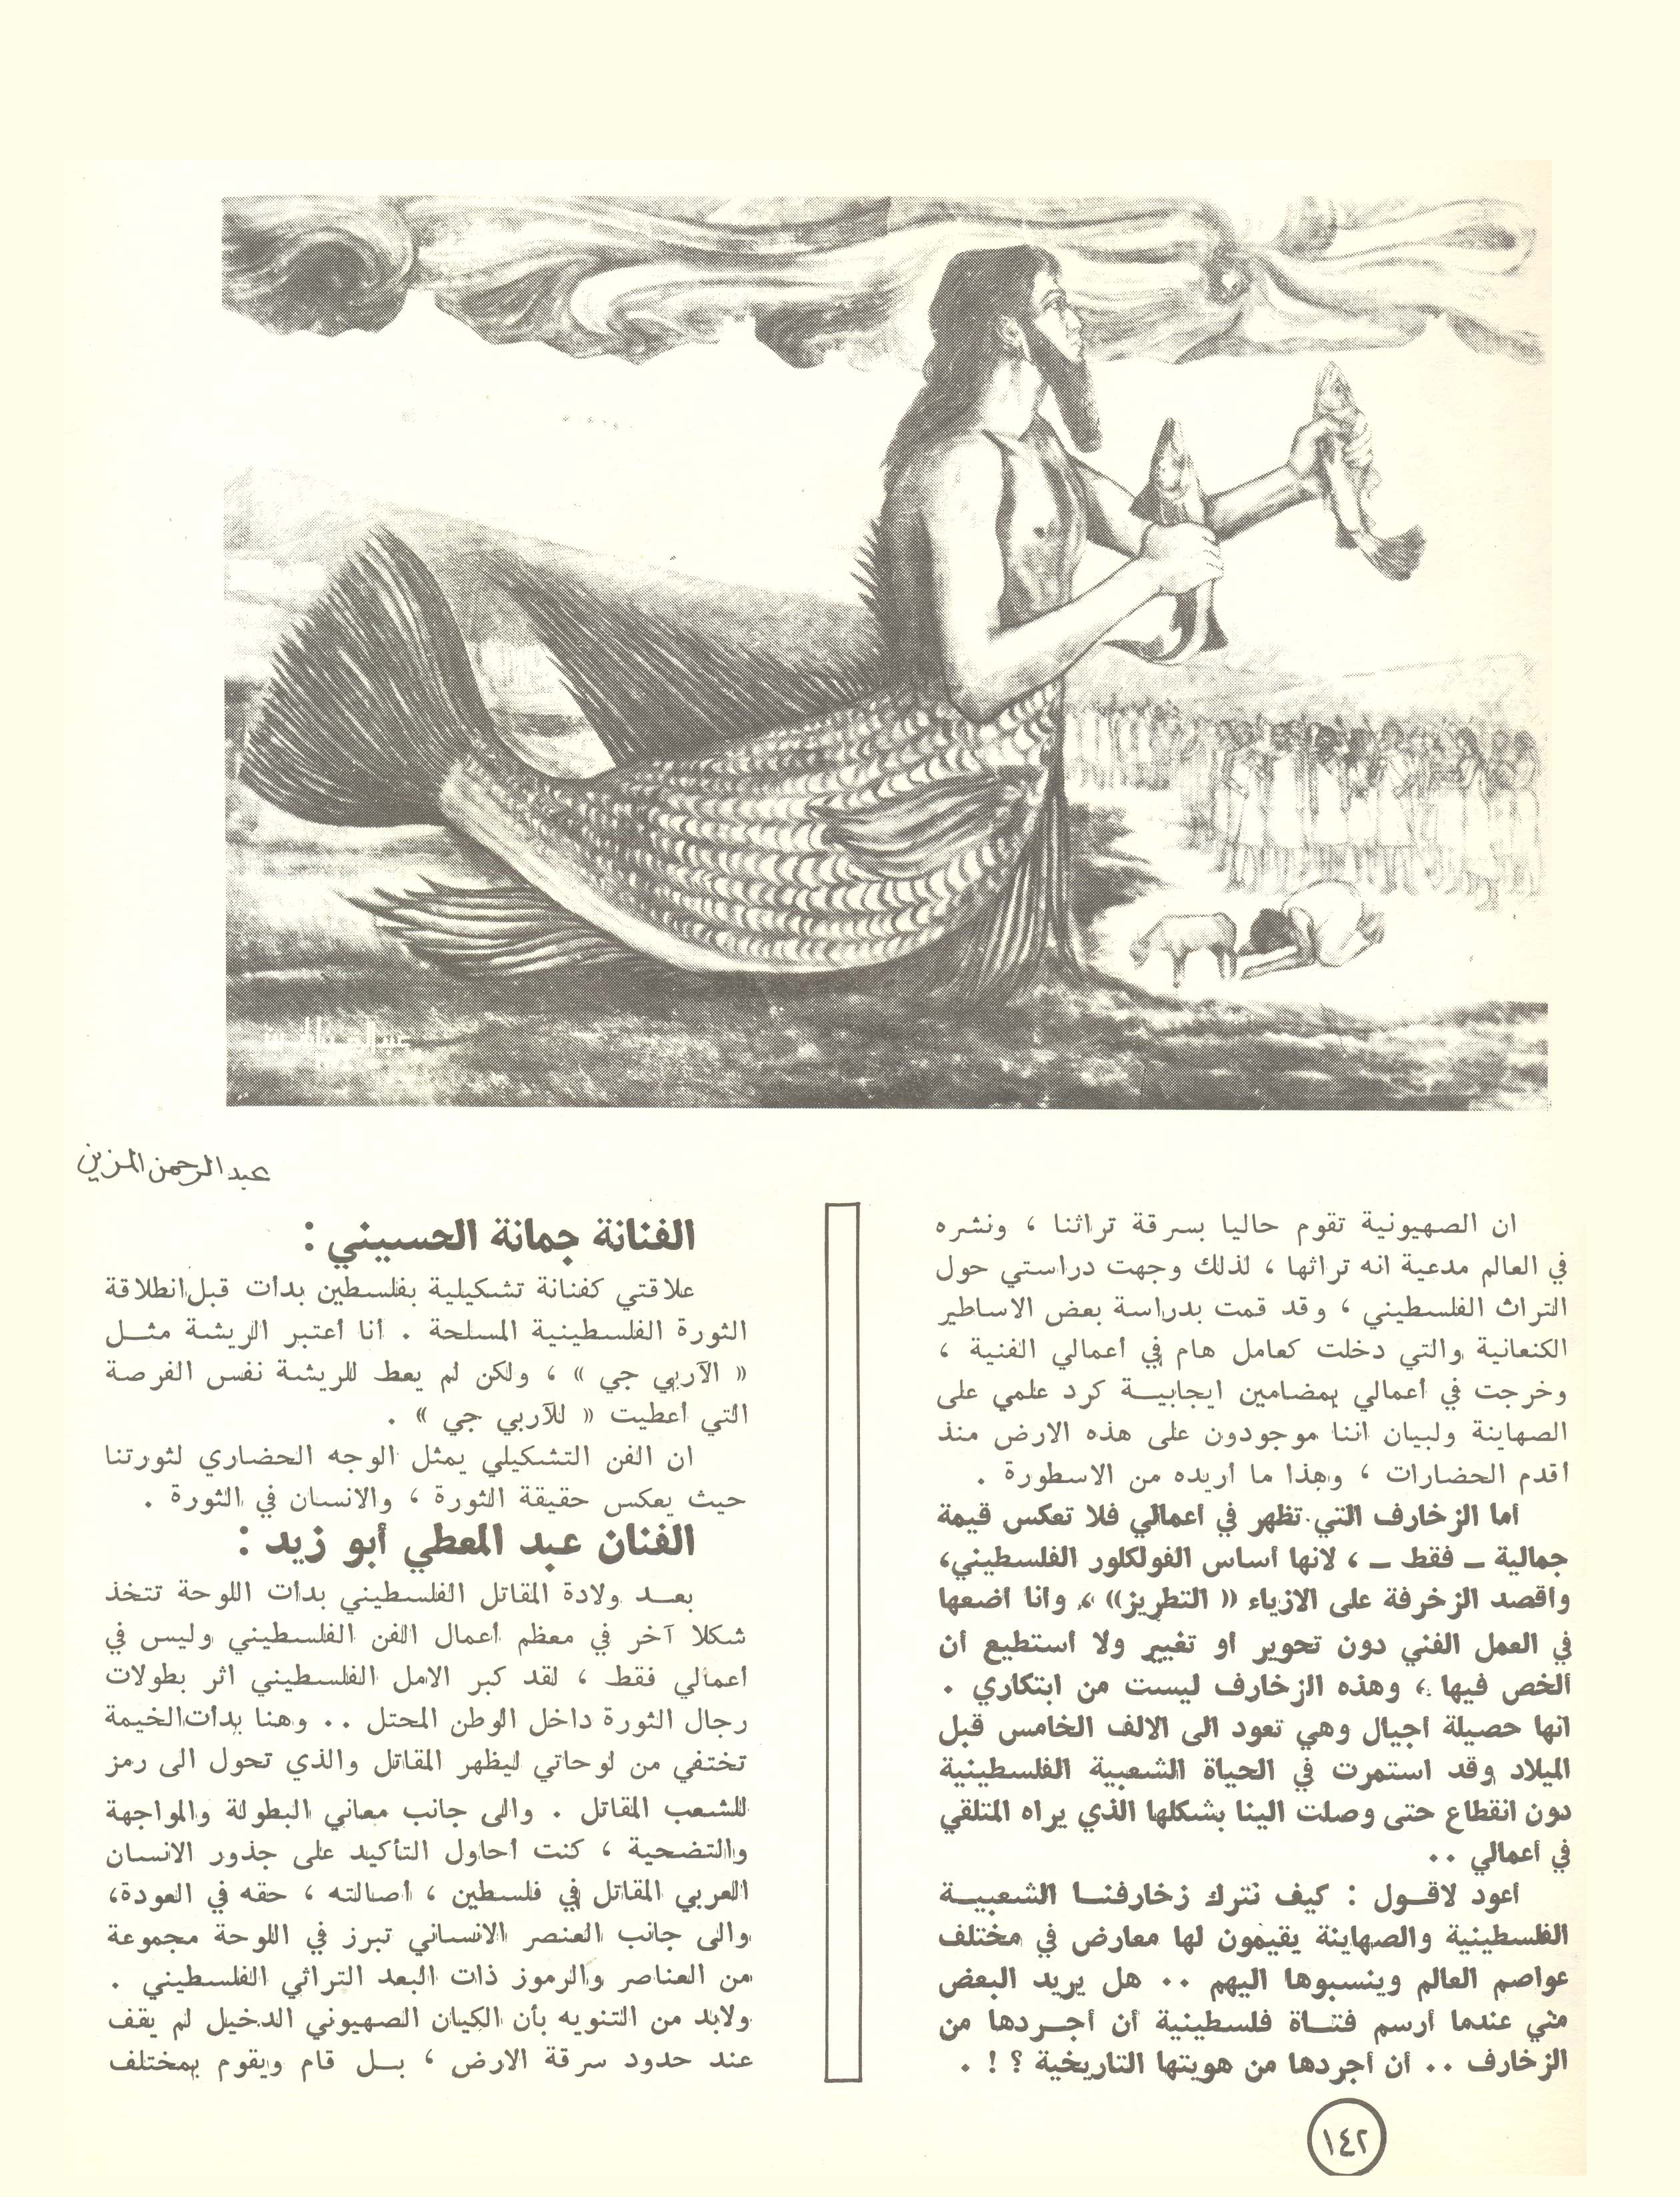 عبد الرحمن المزين
ان الصهيونية تقوم حاليا بسرقة تراثنا ، ونشره
في العالم مدعية انه تراثها ، لذلك وجهت دراستي حول
التراث الفلسطيني ، وقد قمت بدراسة بعض الاساطير
الكنعانية والتي دخلت كعامل هام في أعمالي الفنية ،
وخرجت في أعمالي بمضامين ايجابيــة كرد علمي على
الصهاينة ولبيان اننا موجودون على هذه الارض منذ
أقدم الحضارات ، وهذا ما أريده من الاسطورة .
أما الزخارف التي تظهر في أعمالي فلا تعكس قيمة
جمالية ــ فقط ــ ، لانها أساس الفولكلور الفلسطيني،
واقصد الزخرفة على الازياء (( التطريز)) ، وأنا أضعها
في العمل الفني دون تحوير أو تغيير ولا أستطيع أن
ألخص فيها ، وهذه الزخارف ليست من ابتكاري .
انها حصيلة أجيال وهي تعود الى الالف الخامس قبل
الميلاد وقد استمرت في الحياة الشعبية الفلسطينية
دون انقطاع حتى وصلت الينا بشكلها الذي يراه المتلقي
في أعمالي ..
أعود لاقــول : كيف نترك زخارفنــا الشعبيــة
الفلسطينية والصهاينة يقيمون لها معارض في مختلف
عواصم العالم وينسبوها اليهم .. هل يريد البعض
مني عندما أرسم فتــاة فلسطينية أن أجــردها من
الزخارف .. أن أجردها من هويتها التاريخية ؟ ! .
الفنانة جمانة الحسيني :
علاقتي كفنانة تشكيلية بفلسطين بدأت قبل انطلاقة
الثورة الفلسطينية المسلحة . أنا أعتبر الريشة مثــل
« الآربي جي » ، ولكن لم يعط للريشة نفس الفرصة
التي أعطيت « للآربي جي » .
ان الفن التشكيلي يمثل الوجه الحضاري لثورتنا
حيث يعكس حقيقة الثورة ، والانسان في الثورة .
الفنان عبد المعطي أبو زيد :
بعــد ولادة المقاتل الفلسطيني بدأت اللوحة تتخذ
شكلا آخر في معظم أعمال الفن الفلسطيني وليس في
أعمالي فقط ، لقد كبر الامل الفلسطيني اثر بطولات
رجال الثورة داخل الوطن المحتل .. وهنا بدأت الخيمة
تختفي من لوحاتي ليظهر المقاتل والذي تحول الى رمز
للشعب المقاتل . والى جانب معاني البطولة والمواجهة
والتضحية ، كنت أحاول التأكيد على جذور الانسان
العربي المقاتل في فلسطين ، أصالته ، حقه في العودة،
والى جانب العنصر الانساني تبرز في اللوحة مجموعة
من العناصر والرموز ذات البعد التراثي الفلسطيني .
ولابد من التنويه بأن الكيان الصهيوني الدخيل لم يقف
عند حدود سرقة الارض ، بــل قام ويقوم بمختلف
١٤٢